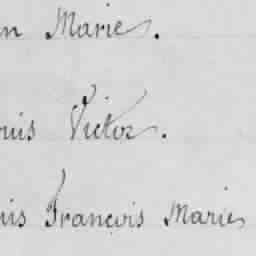 n Marie.
ouis Victor.
uis François Marie